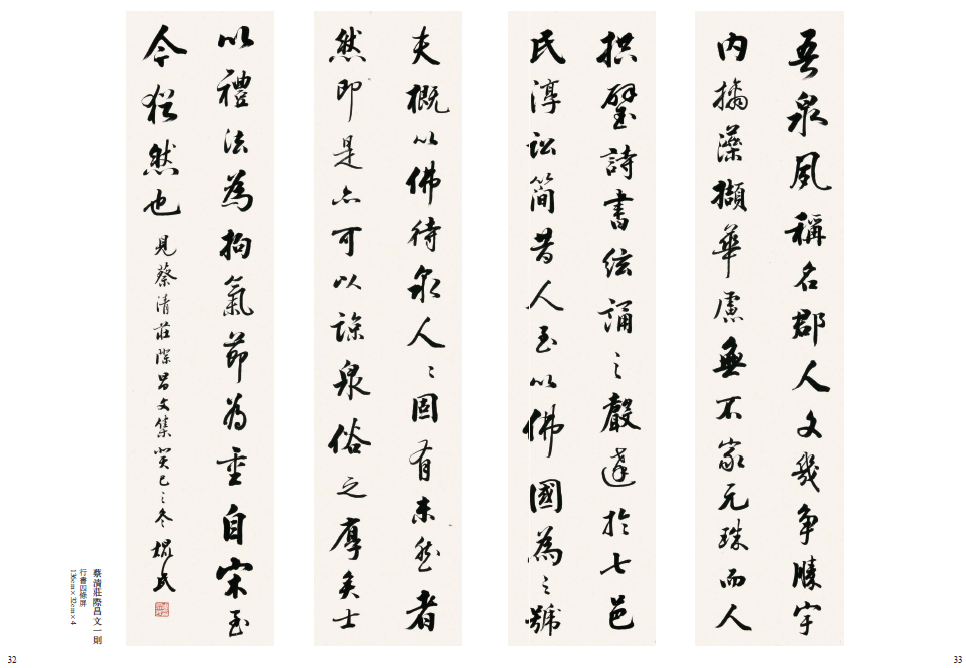 吾泉夙稱名郡人文幾爭勝宇
内摛藻擷華慮無不家元珠而人
拱璧詩書弦誦之聲達於七邑
民淳訟簡昔人至以佛國為之號
夫概以佛待泉人人固有未然者
然即是亦可以諗泉俗之厚矣士
以禮法為拘氣節為重自宋至
今猶然也 見蔡清莊際昌文集 癸巳之冬
蔡清莊際昌文一則
行書四條屏
136cm×33cm×4
32
33